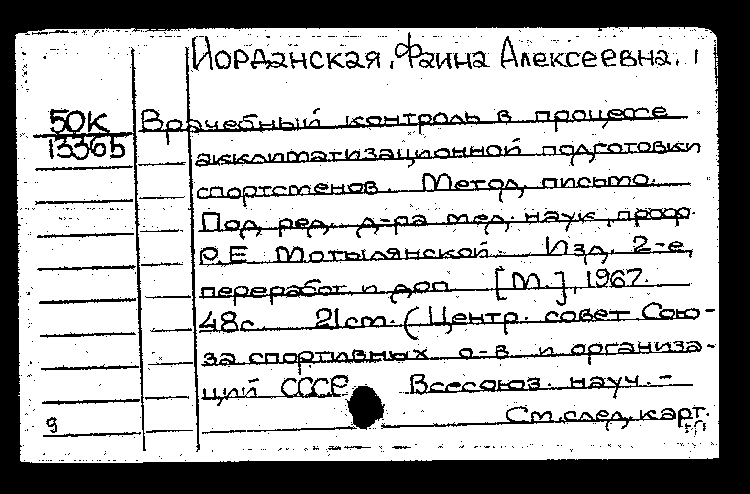 Иорданская, Фаина Алексеевна. 1
50К Врачебный контроль в процессе
13365 акклиматизационной подготовки
спортсменов. Метод. письмо.
Под ред. д-ра мед. наук, проф.
Р.Е. Мотылянской. Изд. 2-е,
переработ. и доп. [М.], 1967.
48с. 21см. (Центр. совет Сою-
за спортивных о-в и организа-
ций СССР. Всесоюз. науч.-
См. след. карт.
9